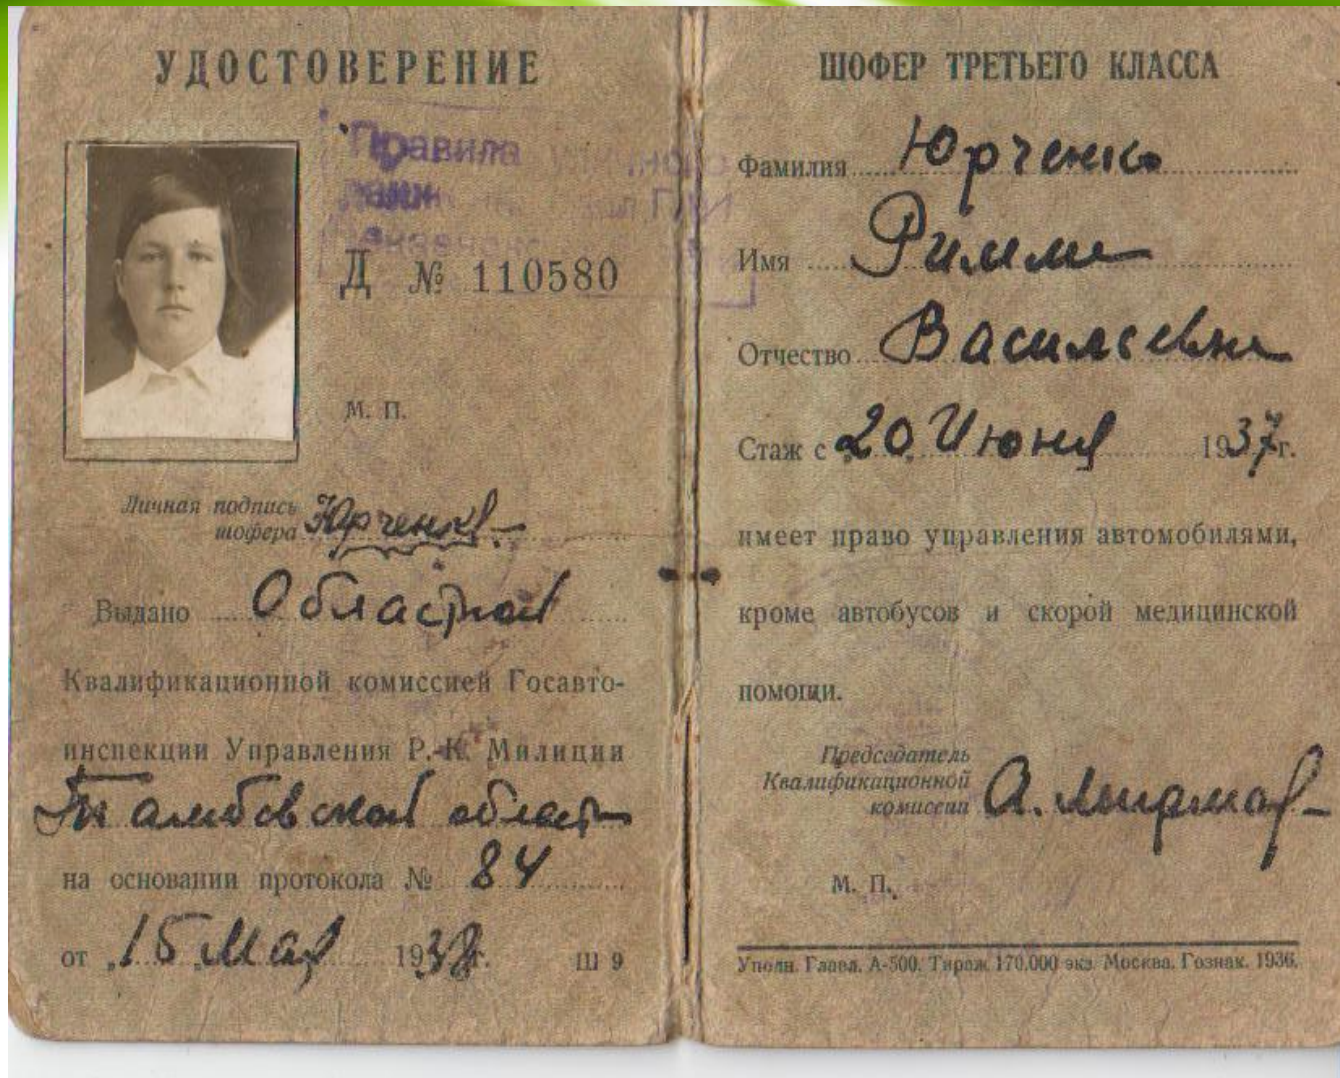 УДОСТОВЕРЕНИЕ
Правила
Д № 110580
М. П.
Личная подпись
шофера Юрченко
Выдано Областной
Квалификационной комиссией Госавто-
инспекции Управления Р.-К. Милиции
Тамбовской области
на основании протокола № 84
от „15„ Мая 1938г. Ш 9
ШОФЕР ТРЕТЬЕГО КЛАССА
Фамилия Юрченко
Имя Римма
Отчество Васильевна
Стаж с „20„ Июня 1937г.
имеет право управления автомобилями,
кроме автобусов и скорой медицинской
помощи.
Председатель
Квалификационной
комиссии А.
М. П.
Уполн. Главл. А-500. Тираж 170.000 экз. Москва. Гознак. 1936.